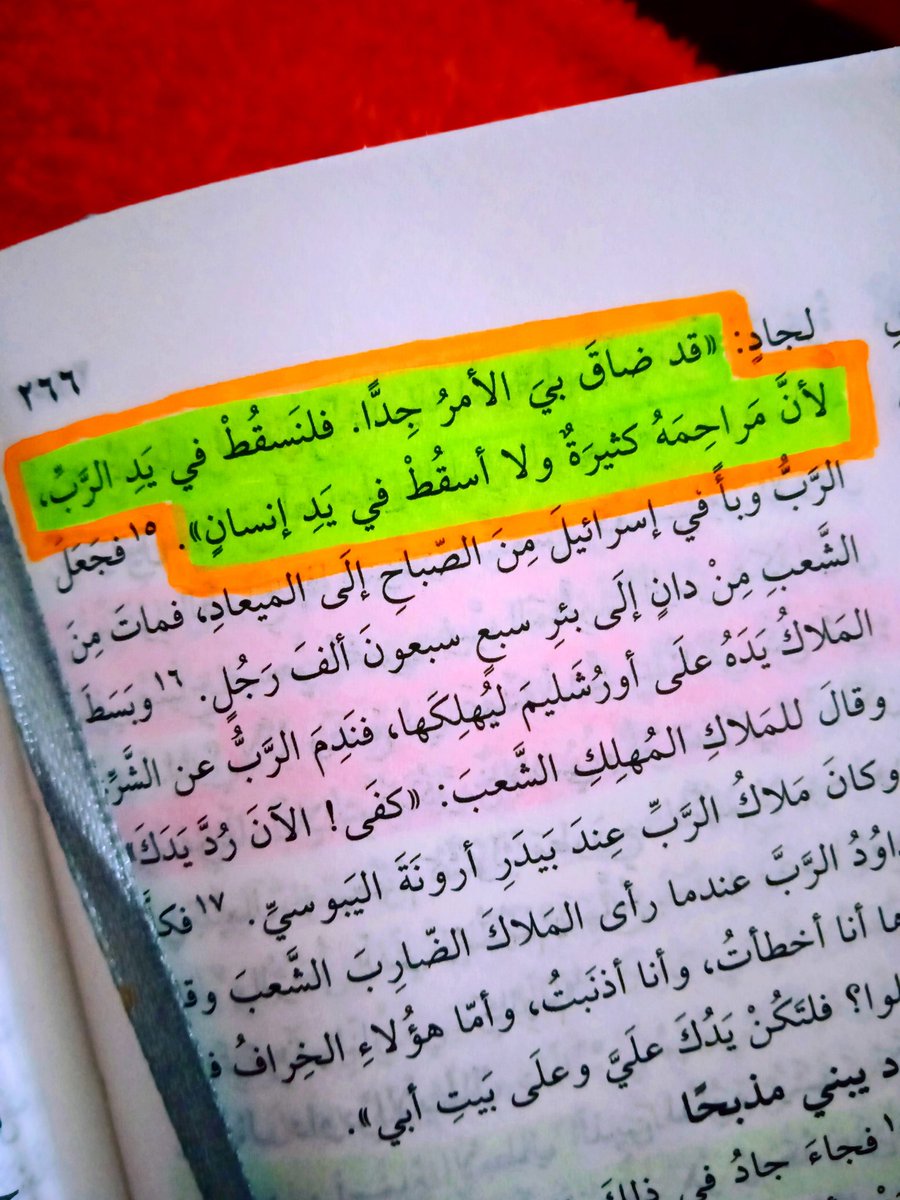 ٢٦٦
لجادٍ: «قد ضاقَ بيَ الأمرُ جِدًّا. فلنَسقُطْ في يَدِ الرَّبِّ،
لأنَّ مَراحِمَهُ كثيرَةٌ ولا أسقُطْ في يَدِ إنسانٍ». ١٥فجَعَلَ
الرَّبُّ وبأً في إسرائيلَ مِنَ الصّباحِ إلَى الميعادِ، فماتَ مِنَ
الشَّعبِ مِنْ دانٍ إلَى بئرِ سبعٍ سبعونَ ألفَ رَجُلٍ. ١٦وبَسَطَ
المَلاكُ يَدَهُ علَى أورُشَليمَ ليُهلِكَها، فنَدِمَ الرَّبُّ عن الشَّرِّ
وقالَ للمَلاكِ المُهلِكِ الشَّعبَ: «كفَى! الآنَ رُدَّ يَدَكَ»
وكانَ مَلاكُ الرَّبِّ عِندَ بَيدَرِ أرونَةَ اليَبوسيِّ. ١٧
الرَّبَّ عندما رأى المَلاكَ الضّارِبَ الشَّعبَ
أنا أخطأتُ، وأنا أذنَبتُ، وأمّا هؤُلاءِ الخِرافُ
فلتَكُنْ يَدُكَ علَيَّ وعلَى بَيتِ أبي».
يبني مذبحًا
فجاءَ جادُ في